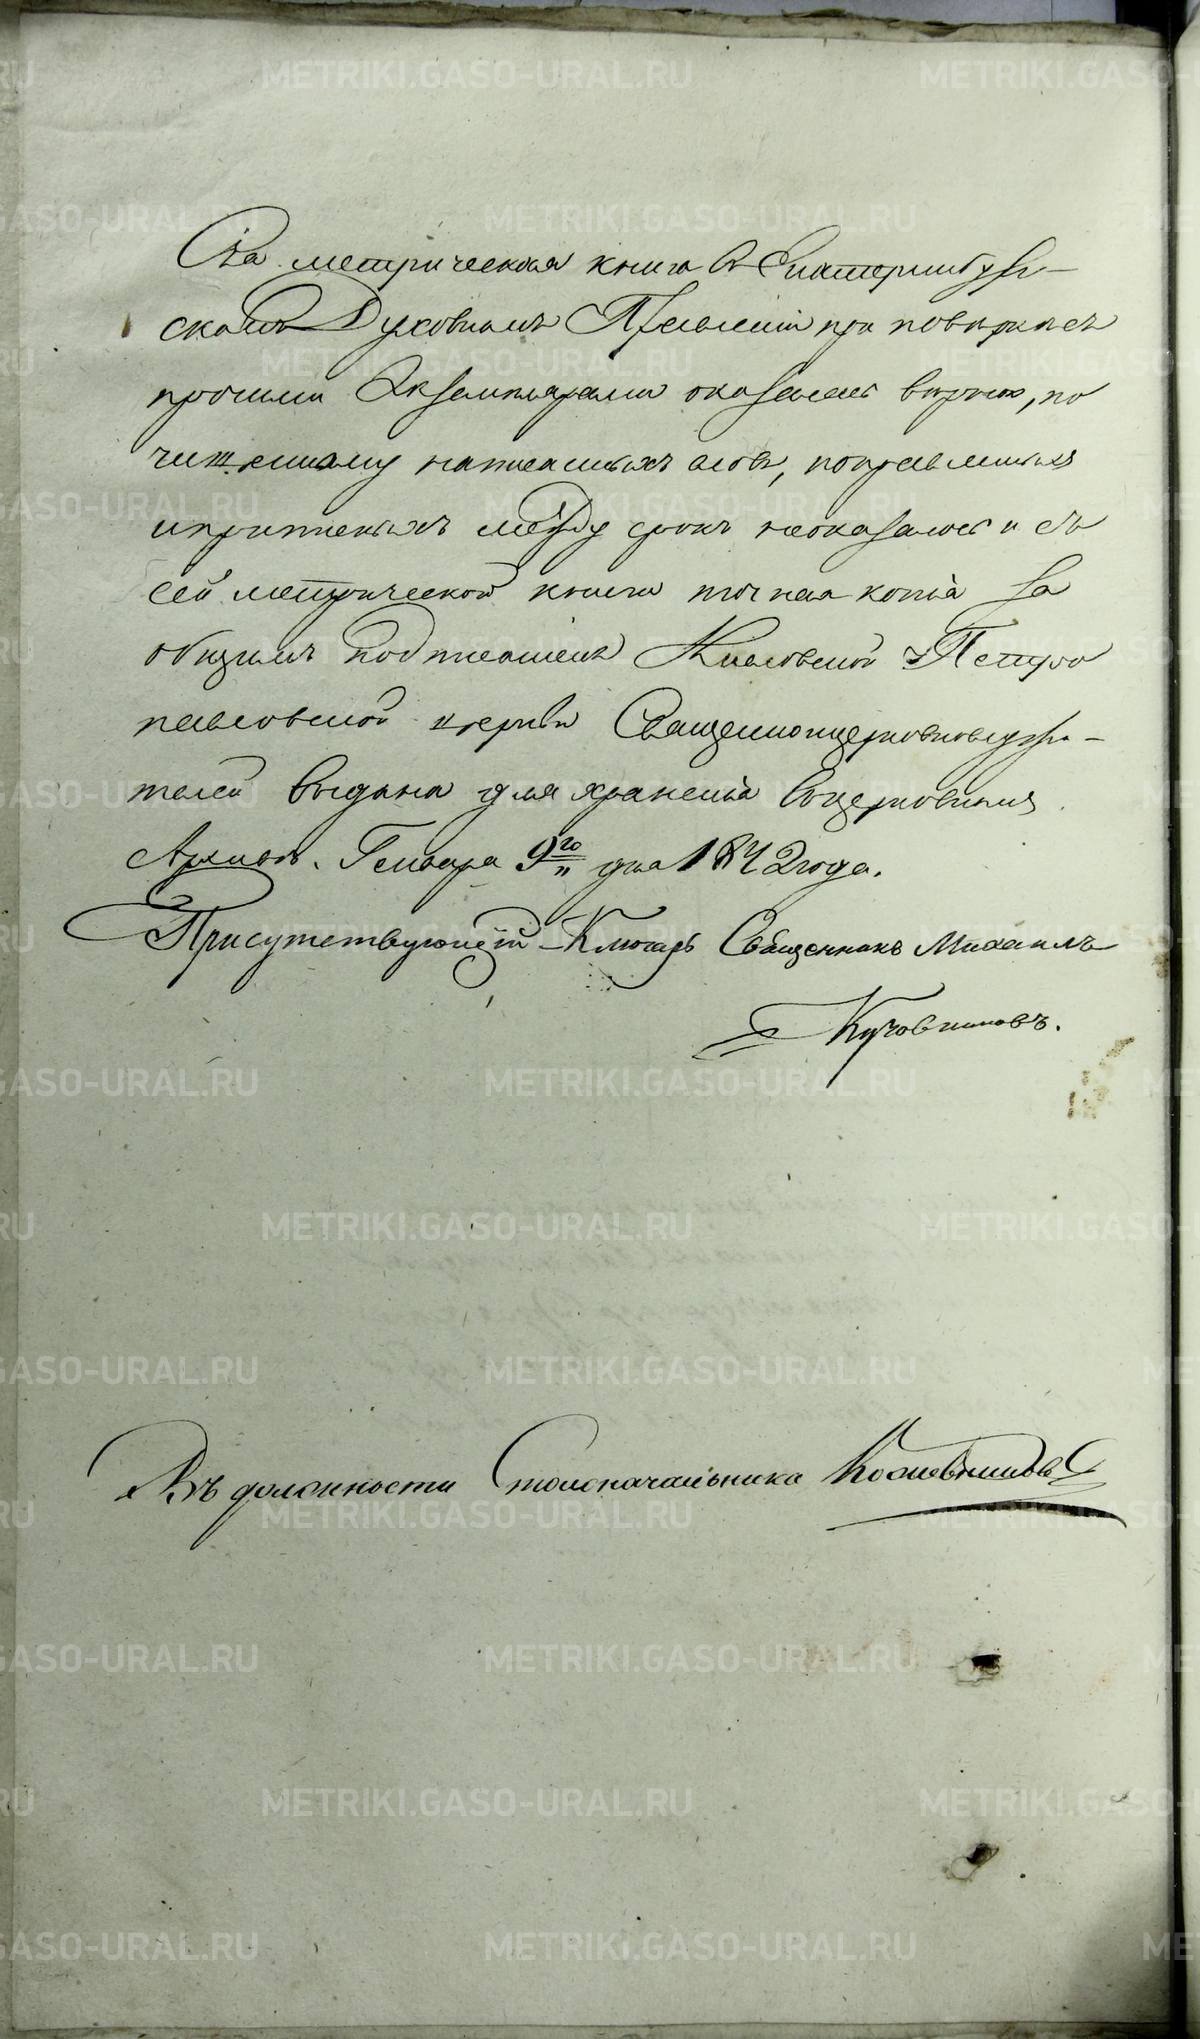 Сiя метрическая книга в Екатеринбург-
скомъ Духовномъ Правленiи при поверке съ
прочими Экземплярами оказалась верною, по
чищенному написанныхъ словъ, поправленныхъ
и приписныхъ между срокъ неоказалось и съ
сей метрической книги точная копiя за
общимъ подписанiемъ Кисловской Петро
павловской церкви Священноцерковнослужи-
телей выдана для храненiя въ церковный
Архивъ. Генваря 9го дня 1842 года.
Присутствующiй Ключарь Священникъ Михаилъ
Въ должности Столоначальника
METRIKI.GASO-URAL.RU